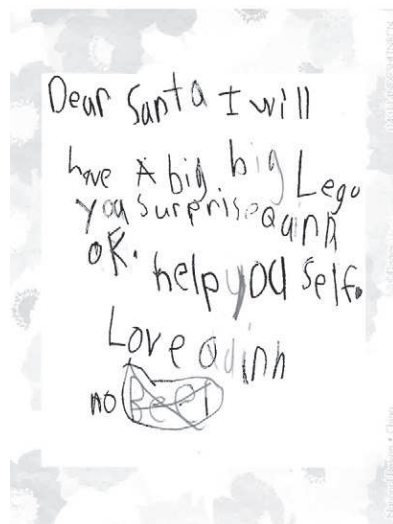 Dear Santa I will
have A big big Lego
you surprise Quinn
OK. help you self.
Love Quinn
no Beer